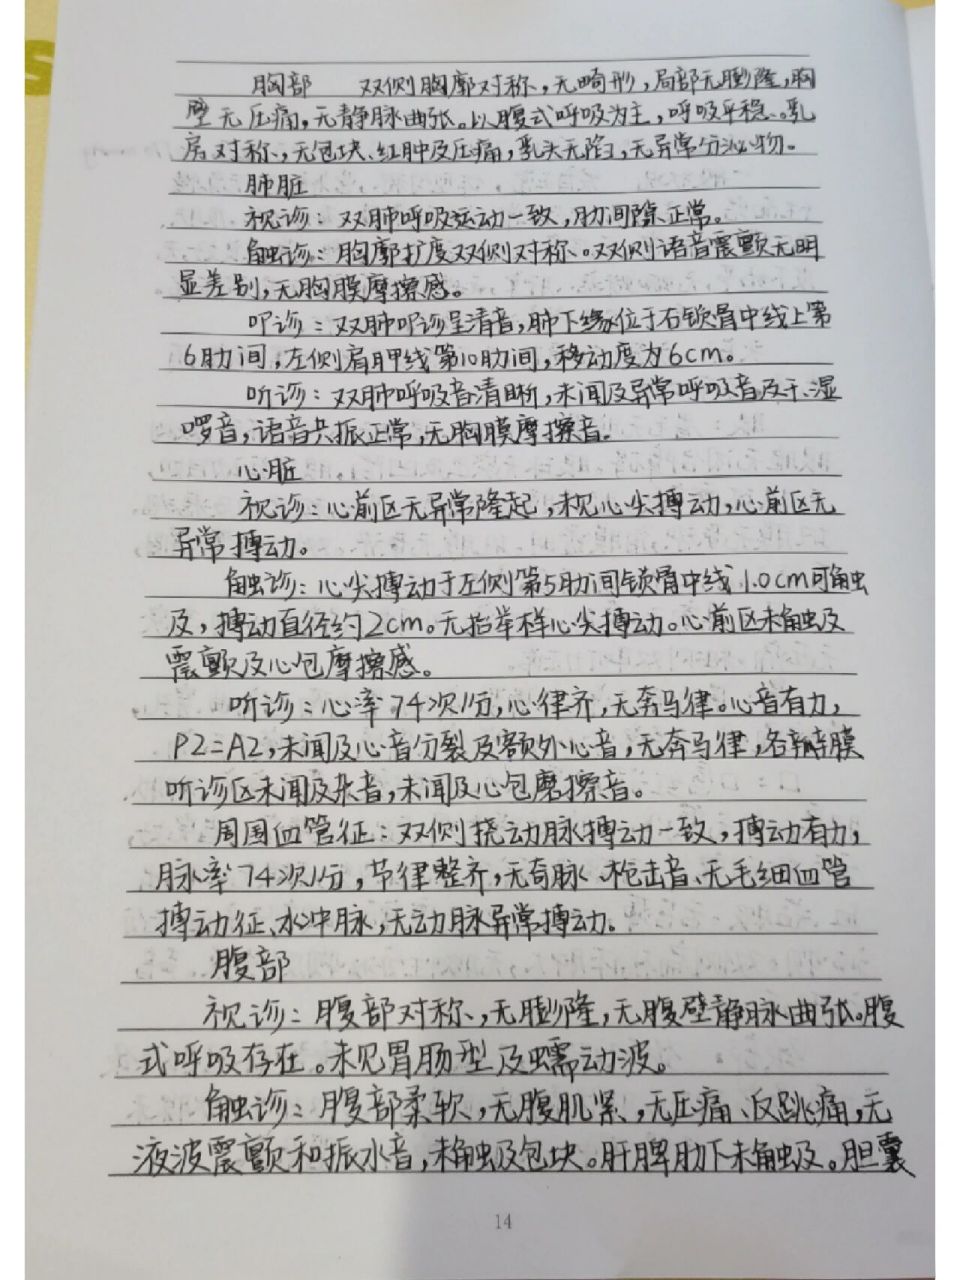 胸部 双侧胸廓对称,无畸形,局部无膨隆,胸
壁无压痛,无静脉曲张。以腹式呼吸为主,呼吸平稳。乳
房对称,无包块、红肿及压痛,乳头无陷,无异常分泌物。
肺脏
视诊:双肺呼吸运动一致,肋间隙正常。
触诊:胸廓扩度双侧对称。双侧语音震颤无明
显差别,无胸膜摩擦感。
叩诊:双肺叩诊呈清音,肺下缘位于右锁骨中线上第
6肋间,左侧肩胛线第10肋间,移动度为6cm。
听诊:双肺呼吸音清晰,未闻及异常呼吸音及干、湿
啰音,语音共振正常,无胸膜摩擦音。
心脏
视诊:心前区无异常隆起,未见心尖搏动,心前区无
异常搏动。
触诊:心尖搏动于左侧第5肋间锁骨中线1.0cm可触
及,搏动直径约2cm。无抬举样心尖搏动。心前区未触及
震颤及心包摩擦感。
听诊:心率74次/份,心律齐,无奔马律。心音有力,
P2=A2,未闻及心音分裂及额外心音,无奔马律,各瓣膜
听诊区未闻及杂音,未闻及心包磨擦音。
周围血管征:双侧挠动脉搏动一致,搏动有力,
脉率74次/份,节律整齐,无奇脉、枪击音、无毛细血管
搏动征、水冲脉,无动脉异常搏动。
腹部
视诊:腹部对称,无膨隆,无腹壁静脉曲张。腹
式呼吸存在。未见胃肠型及蠕动波。
触诊:腹部柔软,无腹肌紧,无压痛、反跳痛,无
液波震颤和振水音,未触及包块。肝脾肋下未触及。胆囊
14